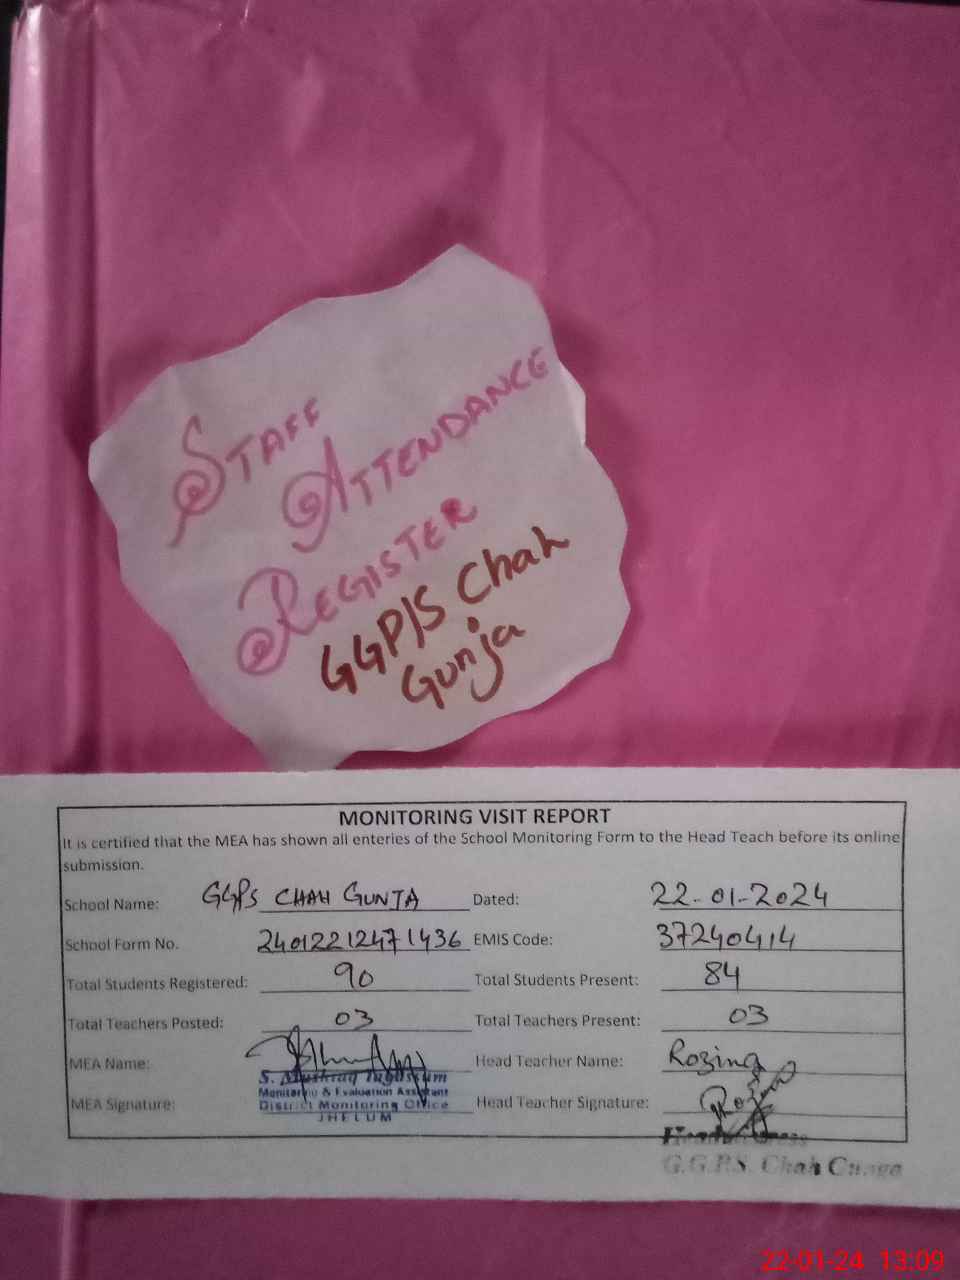 STAFF
ATTENDANCE
REGISTER
GGP/S Chah
Gunja
MONITORING VISIT REPORT
It is certified that the MEA has shown all enteries of the School Monitoring Form to the Head Teach before its online
submission.
School Name: GGPS CHAH GUNJA Dated: 22-01-2024
School Form No. 24012212471436 EMIS Code: 37240414
Total Students Registered: 90 Total Students Present: 84
Total Teachers Posted: 03 Total Teachers Present: 03
MEA Name: Head Teacher Name: Rozina
S. Mushtaq Tabassum
Monitoring & Evaluation Assistant
MEA Signature: Head Teacher Signature:
District Monitoring Office
JHELUM
Headmistress
G.G.P.S. Chah
22-01-24 13:09